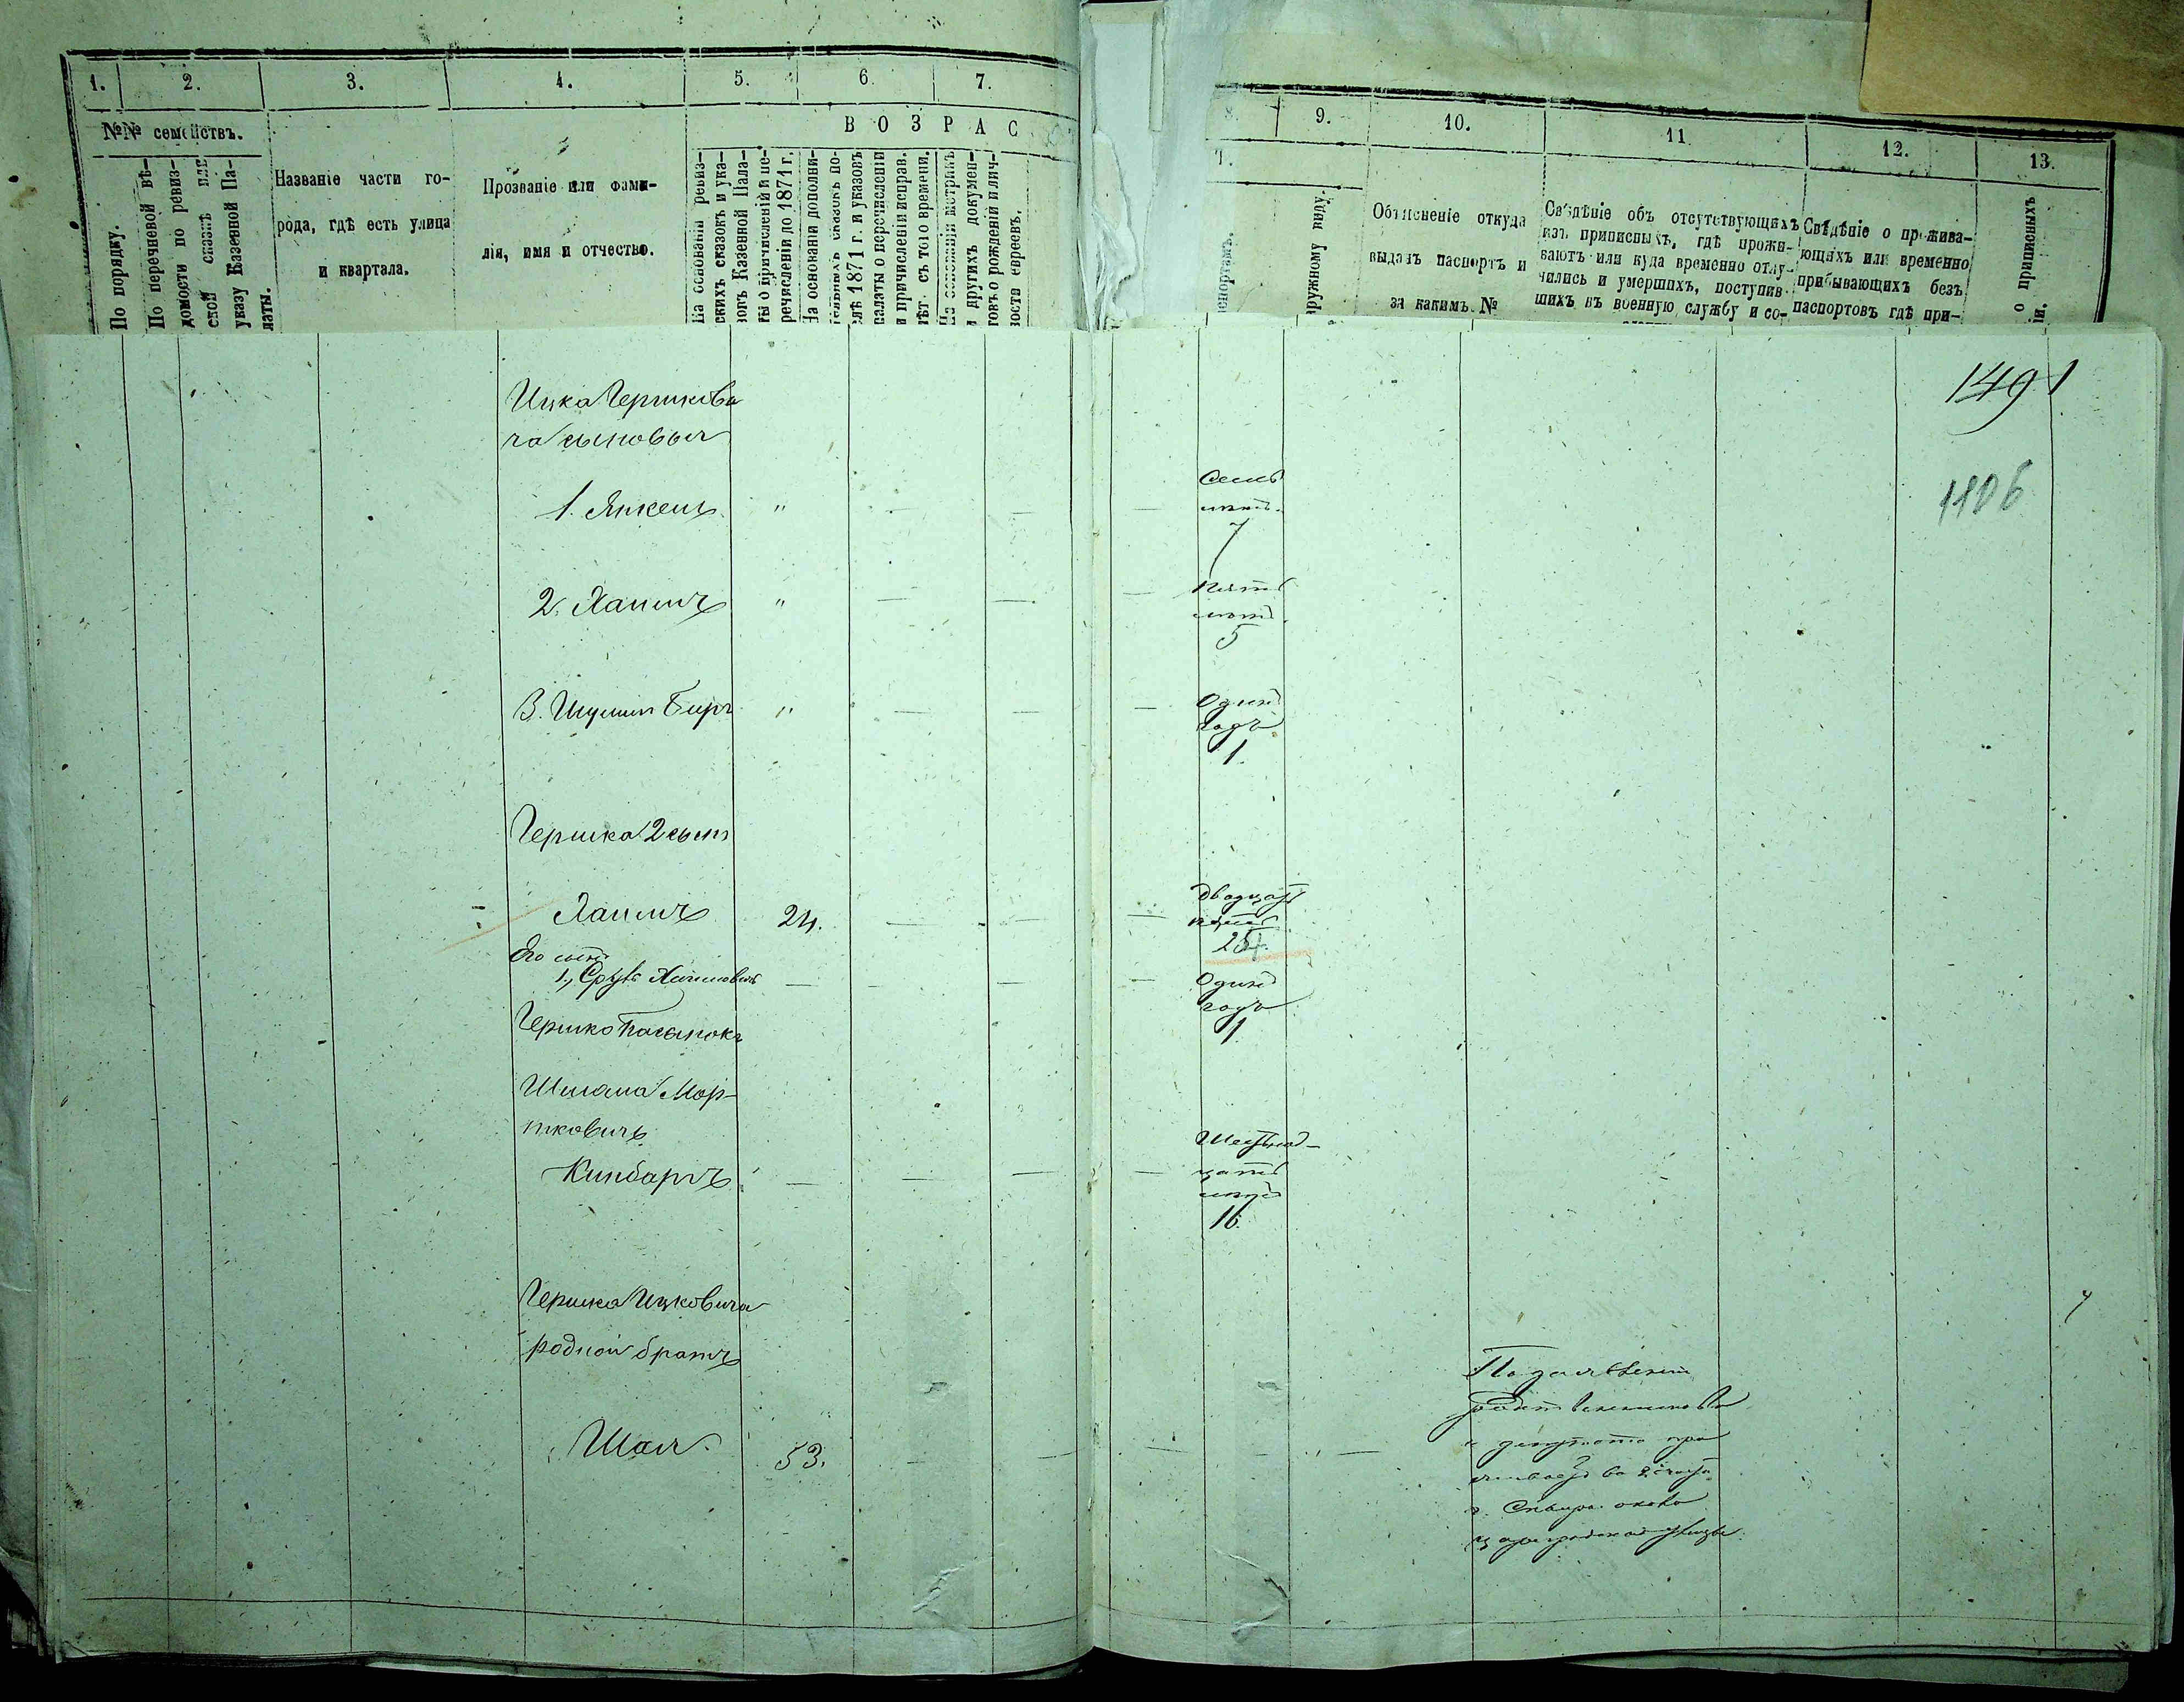 1. 2. 3. 4. 5. 6. 7.
№№ семействъ.
В О З Р А С
По порядку.
По перечневой вѣ-
домости по ревиз-
ской сказкѣ или
указу Казенной Па-
латы.
Названіе части го-
рода, гдѣ есть улица
и квартала.
Прозваніе или фами-
лія, имя и отчество.
На основаніи ревиз-
скихъ сказокъ и ука-
зовъ Казенной Пала-
ты о причисленіи и пе-
речисленіи до 1871 г.
На основаніи дополни-
тельныхъ сказокъ по-
слѣ 1871 г. и указовъ
палаты о перечисленіи
и причисленіи и исправ.
лѣт. съ того времени.
На основаніи метрикъ
и другихъ докумен-
товъ о рожденіи и лич-
ности евреевъ.
8. 9. 10. 11. 12. 13.
Т.
спортамъ.
аружному виду.
Объясненіе откуда
выданъ паспортъ и
за какимъ №
Свѣдѣніе объ отсутствующихъ
изъ приписныхъ, гдѣ прожи-
ваютъ или куда временно отлу-
чились и умершихъ, поступив-
шихъ въ военную службу и со-
Свѣдѣніе о прожива-
ющихъ или временно
прибывающихъ безъ
паспортовъ гдѣ при-
о приписныхъ
іи.
1491
1106
Ицка Гершкови
ча сыновья
1. Янкель " — — — Семь
лѣтъ.
7
2. Хаимъ " — — — Пять
лѣтъ
5
3. Шулим Беръ " — — — Одинъ
годъ
1.
Гершка 2 сынъ
Хаимъ 24. — — — двадцать
пять
25
Его сынъ
1, Сруль Хаимовичъ — — — — Одинъ
годъ
1
Гершко Пасынокъ
Шмама Мор-
тковичъ
Кинбаргъ — — — — Шестьнад-
цать
лѣтъ
16.
Гершка Ицковича
родной братъ
Шая. 53. — — — —
По заявленію
родственниковъ
и депутата про
живаетъ во 2 части
г. Сквира около